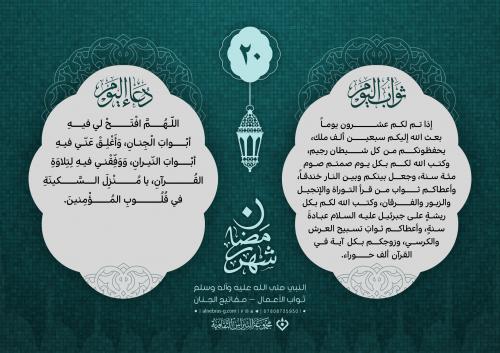 ٢٠
ثواب اليوم
إذا تم لكم عشـــرون يوماً
بعث الله إليكم سبعيـــن ألف ملك،
يحفظونكم من كل شيطان رجيم،
وكتب الله لكم بكل يوم صمتم صوم
مئة سنة، وجعل بينكم وبين النار خندقاً،
وأعطاكم ثواب من قرأ التوراة والإنجيل
والزبور والفرقان، وكتب الله لكم بكل
ريشةٍ على جبرئيل عليه السلام عبادة
سنةٍ، وأعطاكم ثواب تسبيح العرش
والكرسي، وزوجكم بكل آية في
القرآن ألف حوراء.
دعاء اليوم
اللّـهُـمَّ افْتَـحْ لي فيـهِ
أبْـوابَ الْجِنـانِ، وَأغْلِـقْ عَنّـي فيـهِ
أبْــوابَ النّيـرانِ، وَوَفِّقْـني فيـهِ لِتِلاوَةِ
القُــرآنِ، يا مُـنْـزِلَ السَّـكينَةِ
في قُلُـوبِ المُؤْمِنيـنَ.
شهر رمضان
النبي صلى الله عليه وآله وسلم
ثواب الأعمال – مفاتيح الجنان
alnebras-g.com | 07808705950
مجموعة النبراس الثقافية